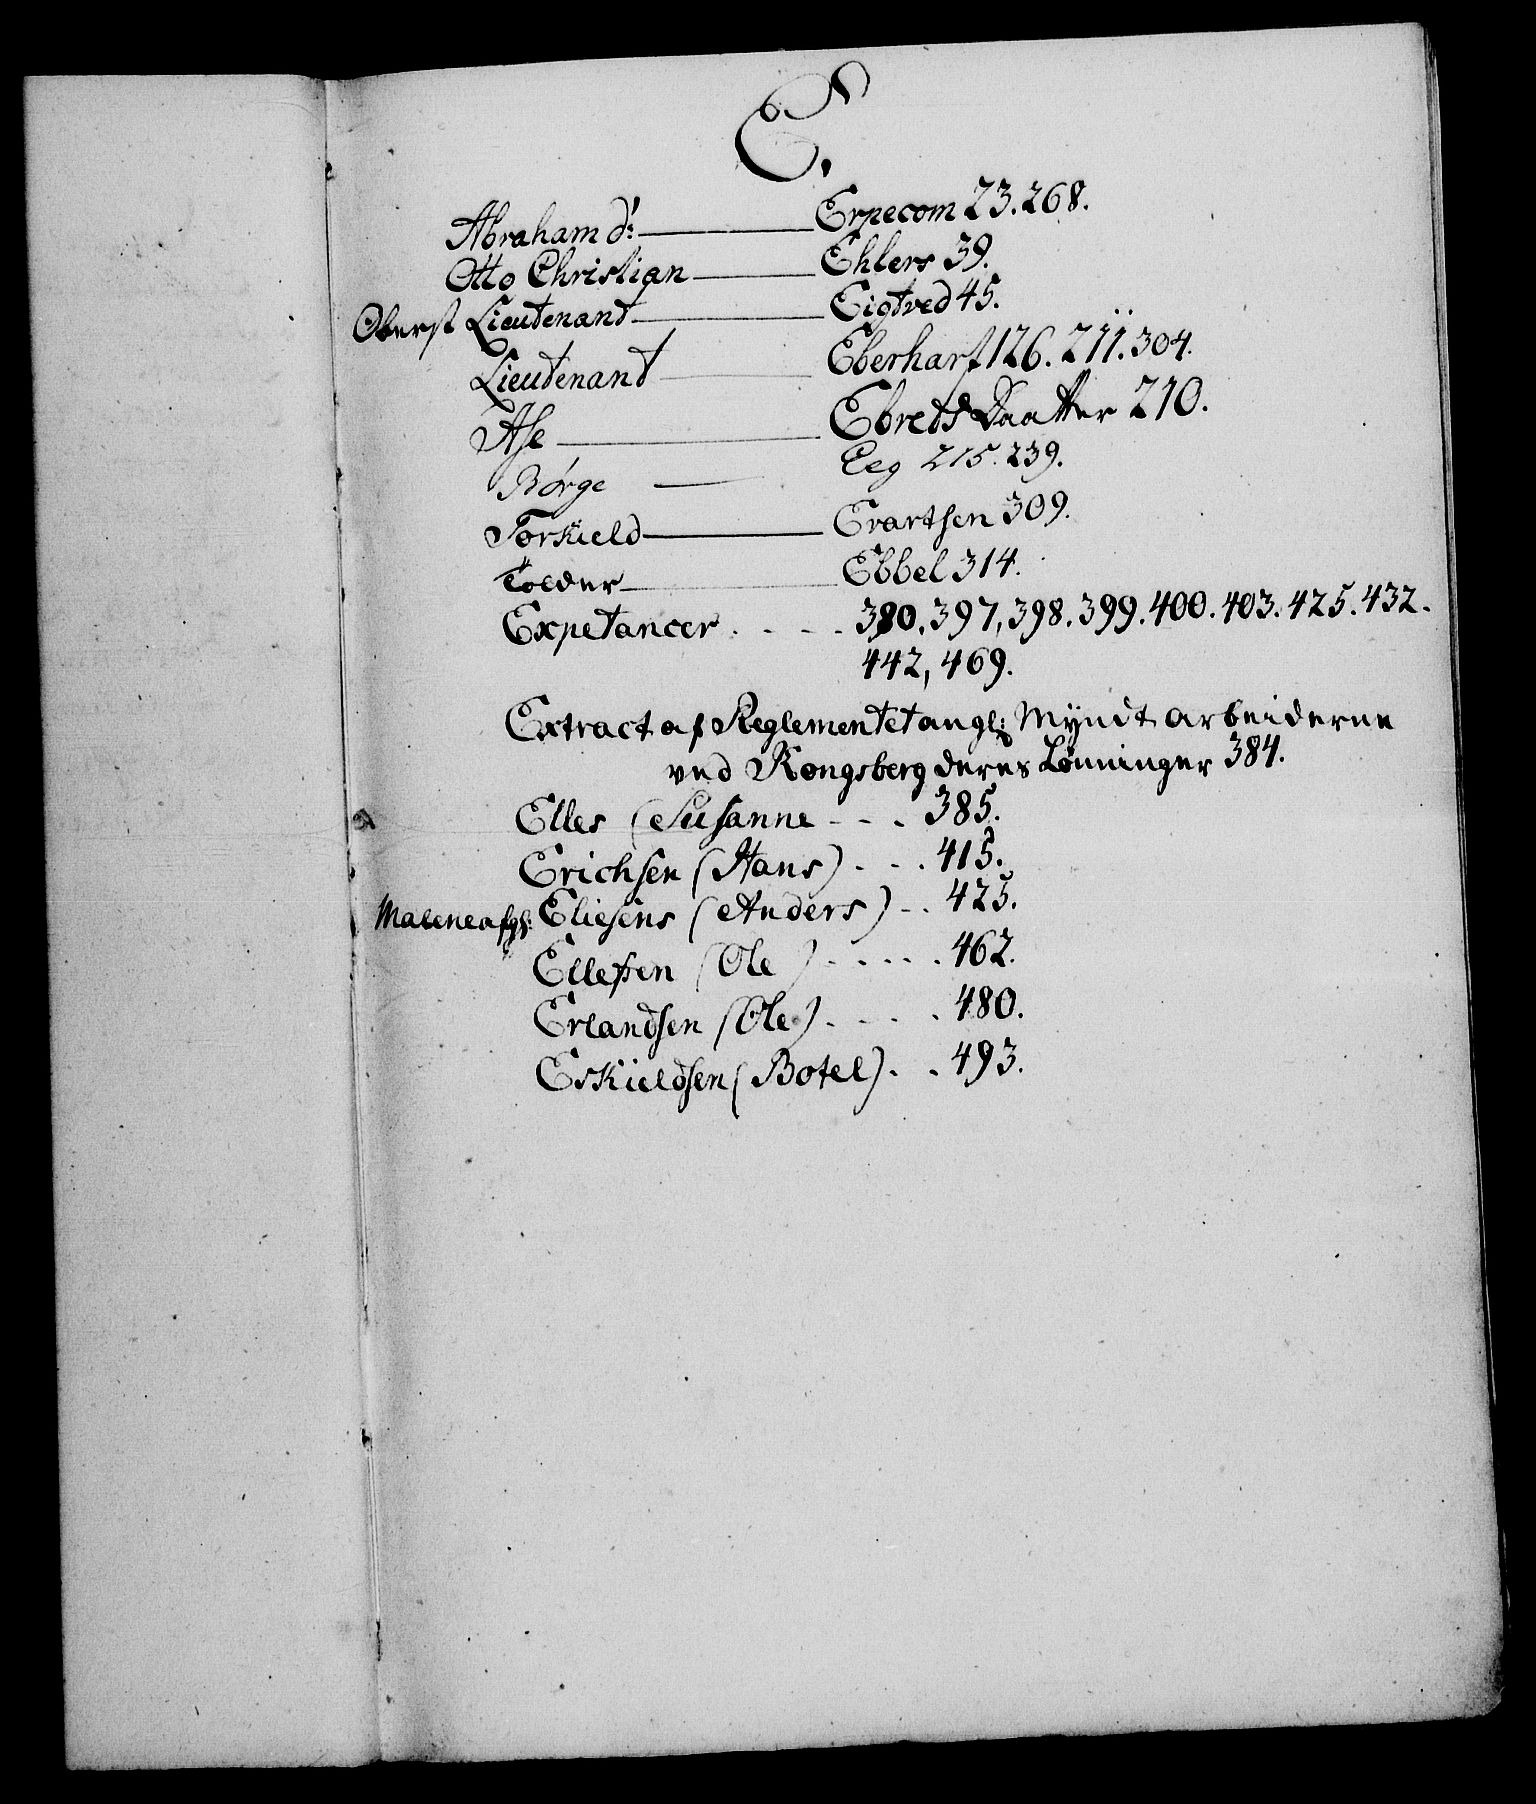 E.
Abraham d: Erpecom 23. 268.
Otto Christian Ehlers 39.
Oberst Lieutenand Eigtved 45.
Lieutenand Eberharf 126. 211. 304.
Ase Ebreds Daatter 210.
Børge Eeg 215. 239.
Torkield Evartsen 309.
Tolder Ebbel 314.
Expetancer . . . . 380, 397, 398. 399. 400. 403. 425. 432.
442, 469.
Extract af Reglementet angl: Myndt arbeiderne
ved Kongsberg deres Lønninger 384.
Elles (Susanne - - . 385.
Erichsen (Hans) . . . 415.
Malene afgl: Eliesens (Anders) - . 425.
Ellefsen (Ole) . . . . . 462.
Erlandsen (Ole) . . . . 480.
Eskieldsen (Botel) . . 493.